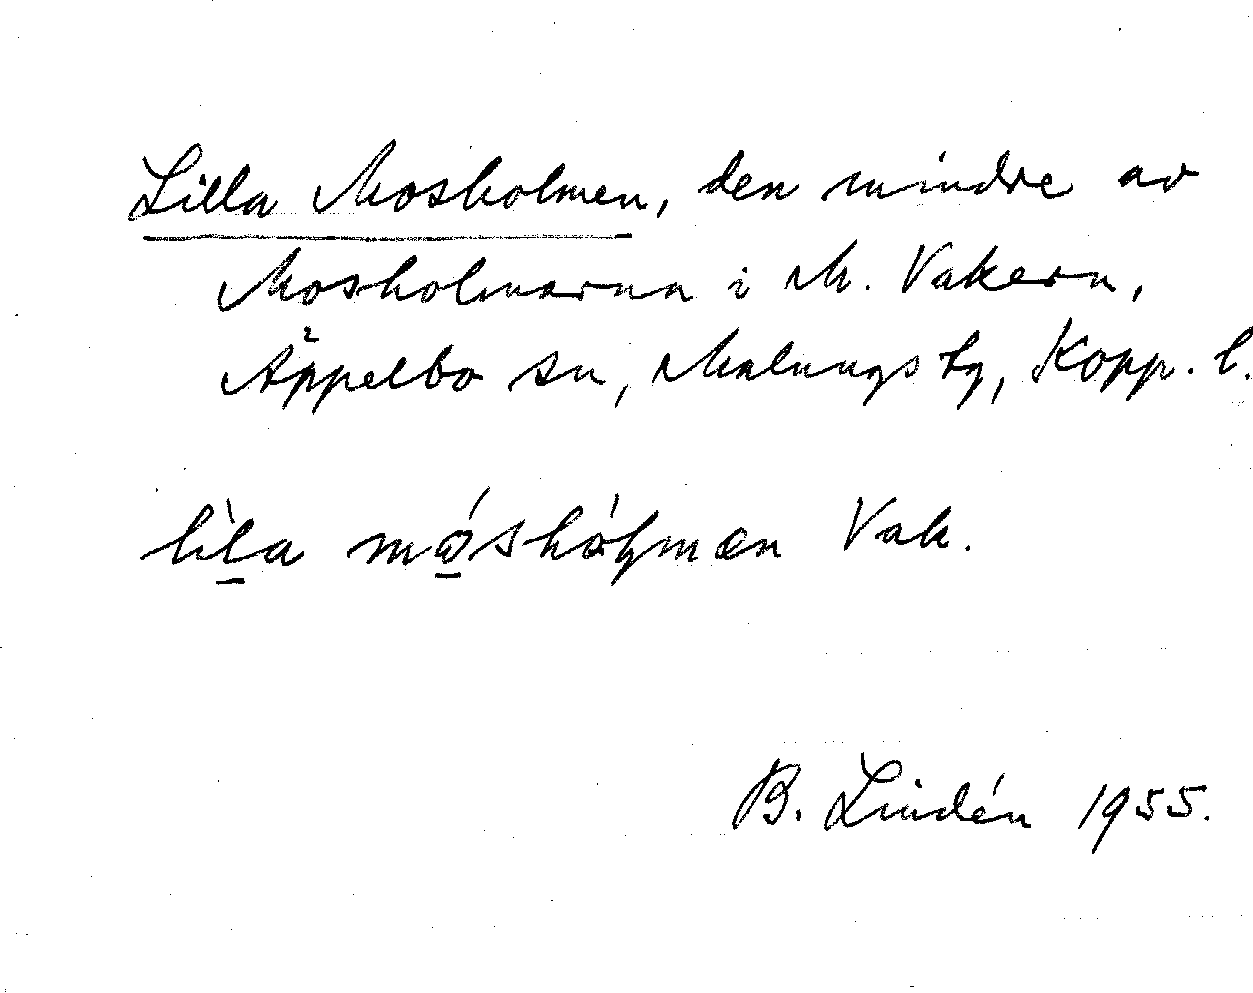 Lilla Mosholmen, den mindre av
Mosholmarna i M. Vakern,
Äppelbo sn, Malungs tg, Kopp. l.
Vak.
B. Lindén 1955.